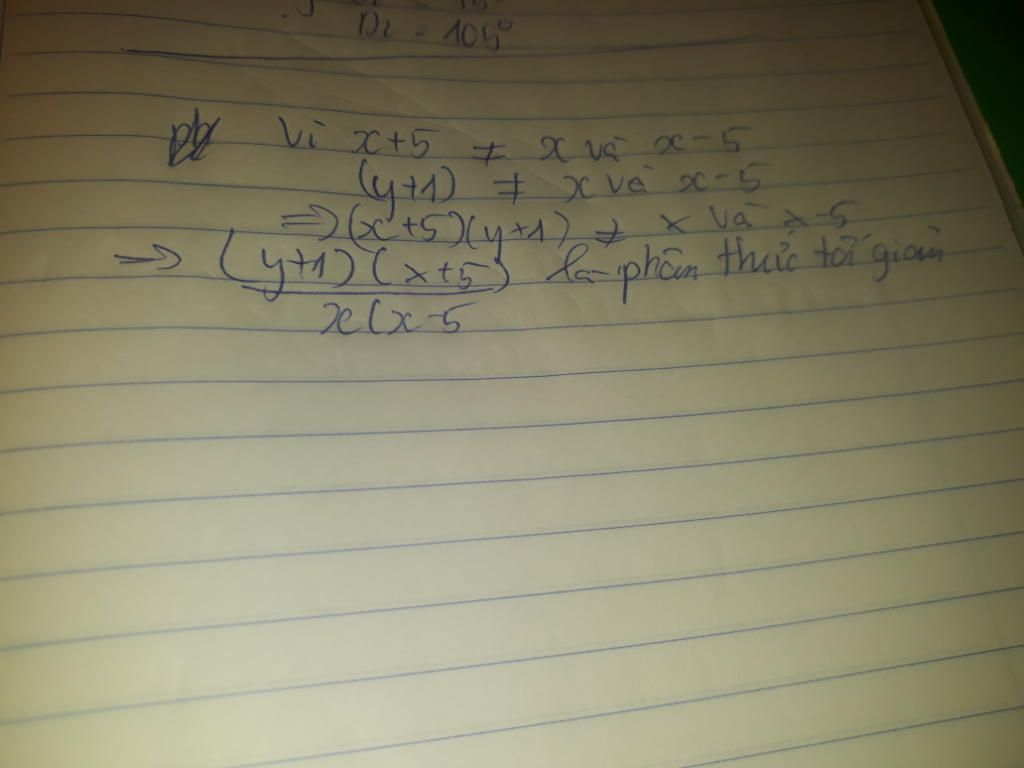 D₂ = 105°
Vì x+5 ≠ x và x-5
(y+1) ≠ x và x-5
⇒(x+5)(y+1) ≠ x và x-5
→ (y+1)(x+5) là phân thức tối giản
x(x-5